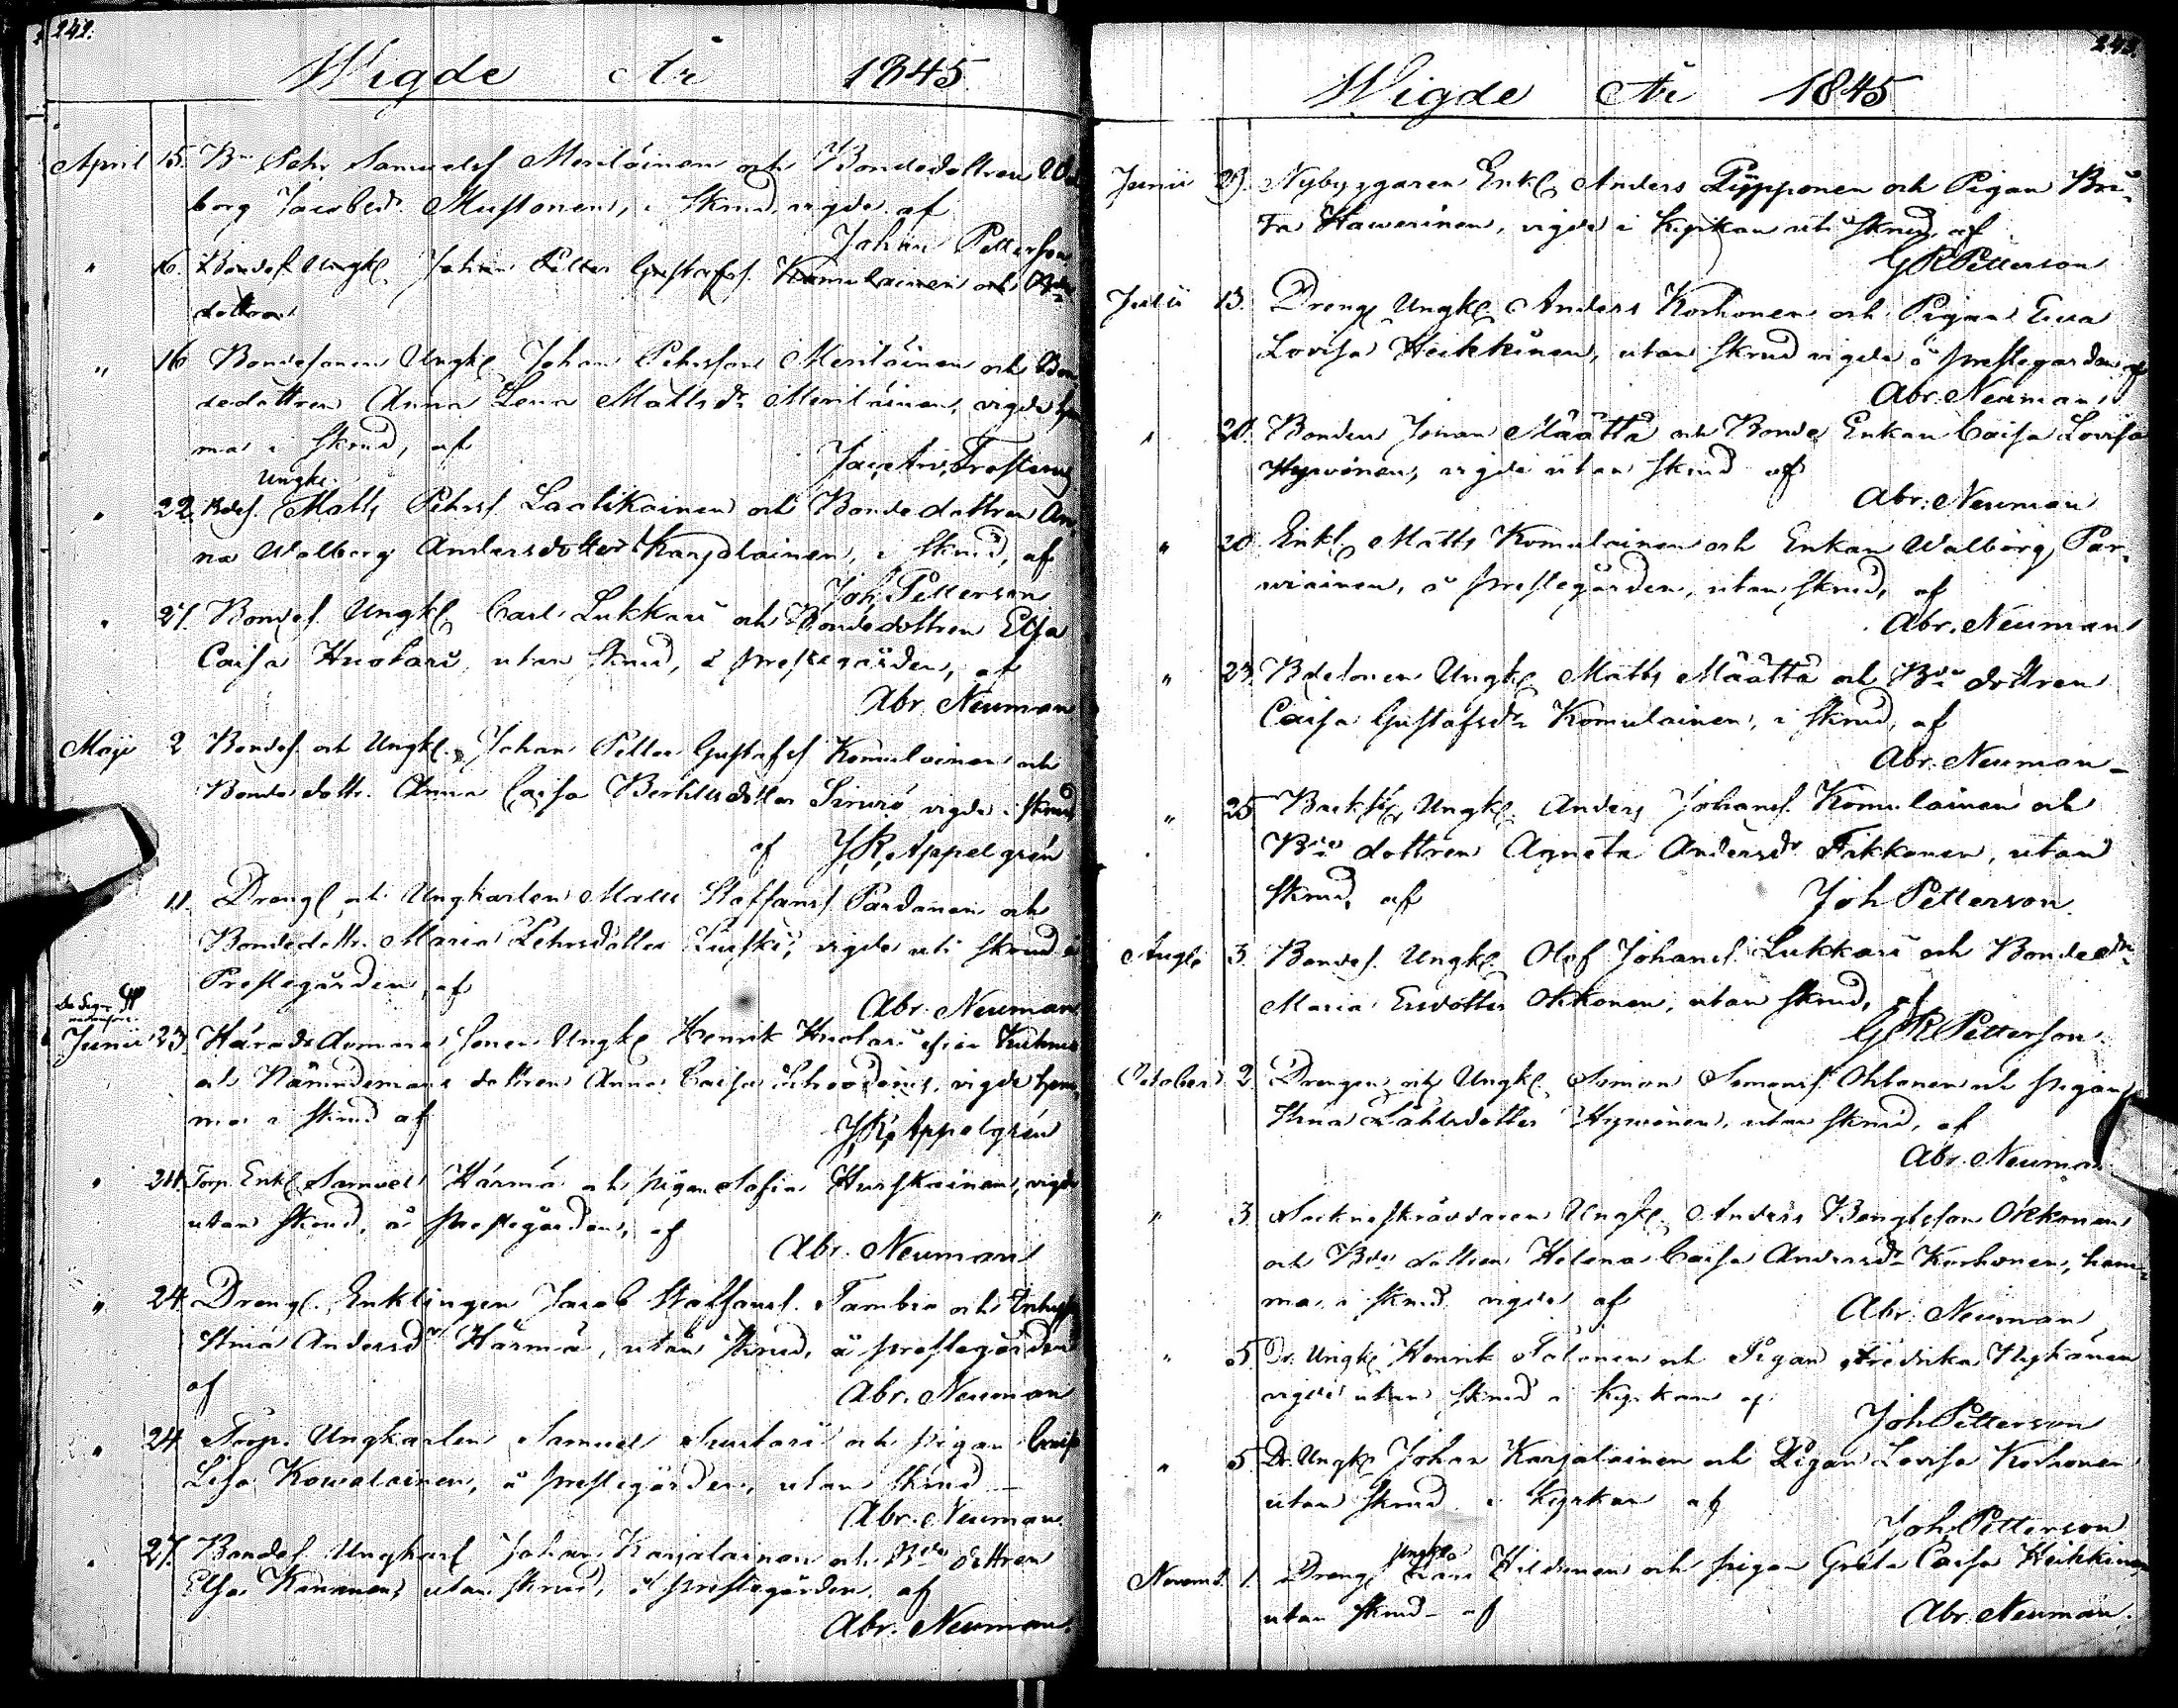 242.
Wigde År 1845.
April 15. Bn Pehr Samuelss. Meriläinen och Bondedottren Wal
borg Jacobsdr. Mustonen, i skrud vigde af
Johan Petterson
" 16. Bondes. Ungkl. Johan Petter Gustafss. Komulainen och Bde
dottren
" 16 Bondesonen Ungkl. Johan Pehrsson Meriläinen och Bon
dedottren Anna Lena Mattsdr Meriläinen, vigde hem
ma i skrud, af
Ungkl.
" 22. Bdes. Matts Pehrss. Laatikainen och Bondedottren An
na Walborg Andersdotter Karjalainen, i skrud, af
Joh. Petterson
" 27. Bondes. Ungkl. Carl Lukkari och Bondedottren Elsa
Caisa Huotari utan skrud, å prestegården, af
Abr. Neuman
Maji 2 Bondes. och Ungkl. Johan Petter Gustafss Komulainen och
Bonde dottr. Anna Caisa Bertilsdotter Sirviö vigde i skrud
af J. R. Appelgrén
11. Drengl. och Ungkarlen Matts Staffanss Pardanen och
Bondedottr. Maria Pehrsdotter vigde uti skrud å
Prestegården, af
Abr. Neuman
Junii 23. Härads domare Sonen Ungkl Henrik Huotari ifrån Kuhmo
och Nämndemans dottren Anna Caisa vigde hem
ma i skrud af
J. R. Appelgrén
" 24. Torp. Enkl. Samuel Härmä och pigan Sofia Hurskainen, vigde
utan skrud, å prestegården, af
Abr. Neuman
" 24. Drengl. Enklingen Jacob Staffanss. Tambio och
Stina Andersdr. Härmä, utan skrud, å prestegården
af
Abr. Neuman
" 24 Torp. Ungkarlen Samuel Suutari och pigan Caisa
Lisa Kowalainen, å prestegården, utan skrud –
Abr. Neuman.
" 27. Bondes. Ungkarl Johan Karjalainen och Bde dottren
Elsa Kananen, utan skrud, å prestegården af
Abr. Neuman.
243.
Wigde År 1845
Junii 29. Nybyggaren Enkl. Anders Pyypponen och Pigan Bri
ta Hawerinen, vigde i kyrkan uti skrud, af
G R Petterson
Julii 13. Dreng Ungkl. Anders Korhonen och Pigan Ewa
Lovisa Heikkinen, utan skrud vigde å prestegården af
Abr. Neuman
" 20. Bonden Johan Määttä och Bonde Enkan Caisa Lovisa
Hyvönen, vigde utan skrud af
Abr. Neuman
" 20 Enkl. Matts Komulainen och Enkan Walborg Par-
wiainen, å prestegården, utan skrud, af
Abr. Neuman
" 23. Bdesonen Ungkl. Matts Määttä och Bde dottren
Caisa Gustafsdr Komulainen, i skrud, af
Abr. Neuman –
" 25 Ungkl. Anders Johanss. Komulainen och
Bde dottren Agneta Andersdr Tikkanen, utan
skrud, af Joh Petterson.
Augti 3. Bondes. Ungkl. Olof Johanss. Lukkari och Bondedr
Maria Ersdotter Okkonen, utan skrud, af
G R Petterson
October 2. Drengen och Ungkl. Simon Simonss. Okkonen och pigan
Stina Hyvönen, utan skrud, af
Abr. Neuman
" 3 Socknskräddaren Ungkl. Anders Bengtsson Okkonen
och Bde dottren Helena Caisa Andersdr Korhonen, hem-
ma i skrud vigde af Abr. Neuman
" 5 Dr. Ungkl Henrik Tolonen och Pigan Fredrika Nykänen
vigde utan skrud i kyrkan af
Joh Petterson
" 5 Dr. Ungkl Johan Karjalainen och Pigan Lovisa Korhonen
utan skrud i kyrkan af
Joh. Petterson
Novemb. 1. Drengl Ungkl. Hildunen och pigan Greta Caisa Heikkinen
utan skrud – af
Abr. Neuman.